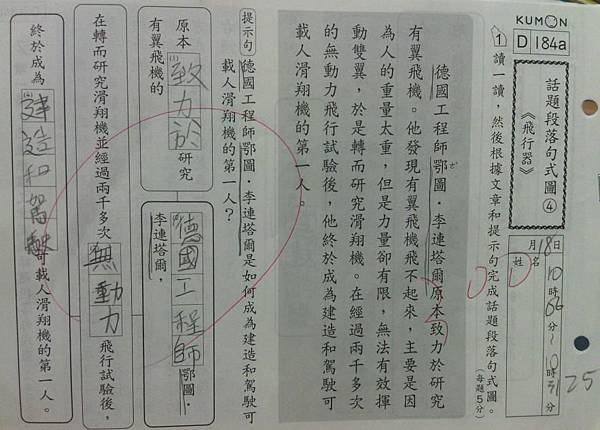 KUMON
D 184a
話題段落句式圖④
《飛行器》
月18日
姓名
10時06分～10時31分
25
1 讀一讀，然後根據文章和提示句完成話題段落句式圖。(每題5分)
德國工程師鄂圖．李連塔爾原本致力於研究
有翼飛機。他發現有翼飛機飛不起來，主要是因
為人的重量太重，但是力量卻有限，無法有效揮
動雙翼，於是轉而研究滑翔機。在經過兩千多次
的無動力飛行試驗後，他終於成為建造和駕駛可
載人滑翔機的第一人。
提示句 德國工程師鄂圖．李連塔爾是如何成為建造和駕駛可
載人滑翔機的第一人？
德國工程師鄂圖．
李連塔爾，
原本致力於研究
有翼飛機的
在轉而研究滑翔機並經過兩千多次無動力飛行試驗後，
終於成為建造和駕駛可載人滑翔機的第一人。